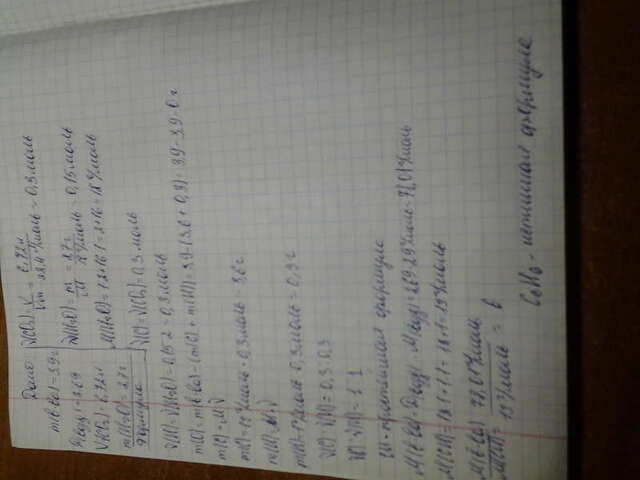 Дано
m(в-ва) = 3,9 г
D(возд) = 2,69
V(CO₂) = 6,72 л
m(H₂O) = 2,7 г
Формула
ν(CO₂) = V/Vm = 6,72 л/22,4 л/моль = 0,3 моль
ν(H₂O) = m/M = 2,7 г/18 г/моль = 0,15 моль
M(H₂O) = 1·2 + 16·1 = 2 + 16 = 18 г/моль
ν(C) = ν(CO₂) = 0,3 моль
ν(H) = ν(H₂O) = 0,15·2 = 0,3 моль
m(O) = m(в-ва) - (m(C) + m(H)) = 3,9 - (3,6 + 0,3) = 3,9 - 3,9 = 0 г
m(C) = M·ν
m(C) = 12 г/моль · 0,3 моль = 3,6 г
m(H) = M·ν
m(H) = 1 г/моль · 0,3 моль = 0,3 г
ν(C) : ν(H) = 0,3 : 0,3
ν(C) : ν(H) = 1 : 1
CH - простейшая формула
M(в-ва) = D(возд) · M(возд) = 2,69 · 29 г/моль = 78,01 г/моль
M(CH) = 12·1 + 1·1 = 12 + 1 = 13 г/моль
M(в-ва)/M(CH) = 78,01 г/моль/13 г/моль = 6
C₆H₆ - истинная формула